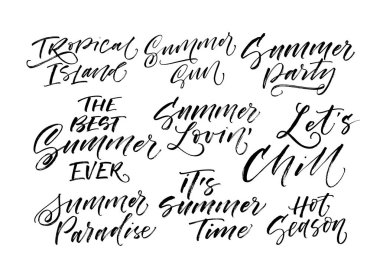 Tropical
Island
Summer
Sun
Summer
Party
THE
BEST
Summer
EVER
Summer
Lovin'
Let's
Chill
Summer
Paradise
It's
Summer
Time
Hot
Season